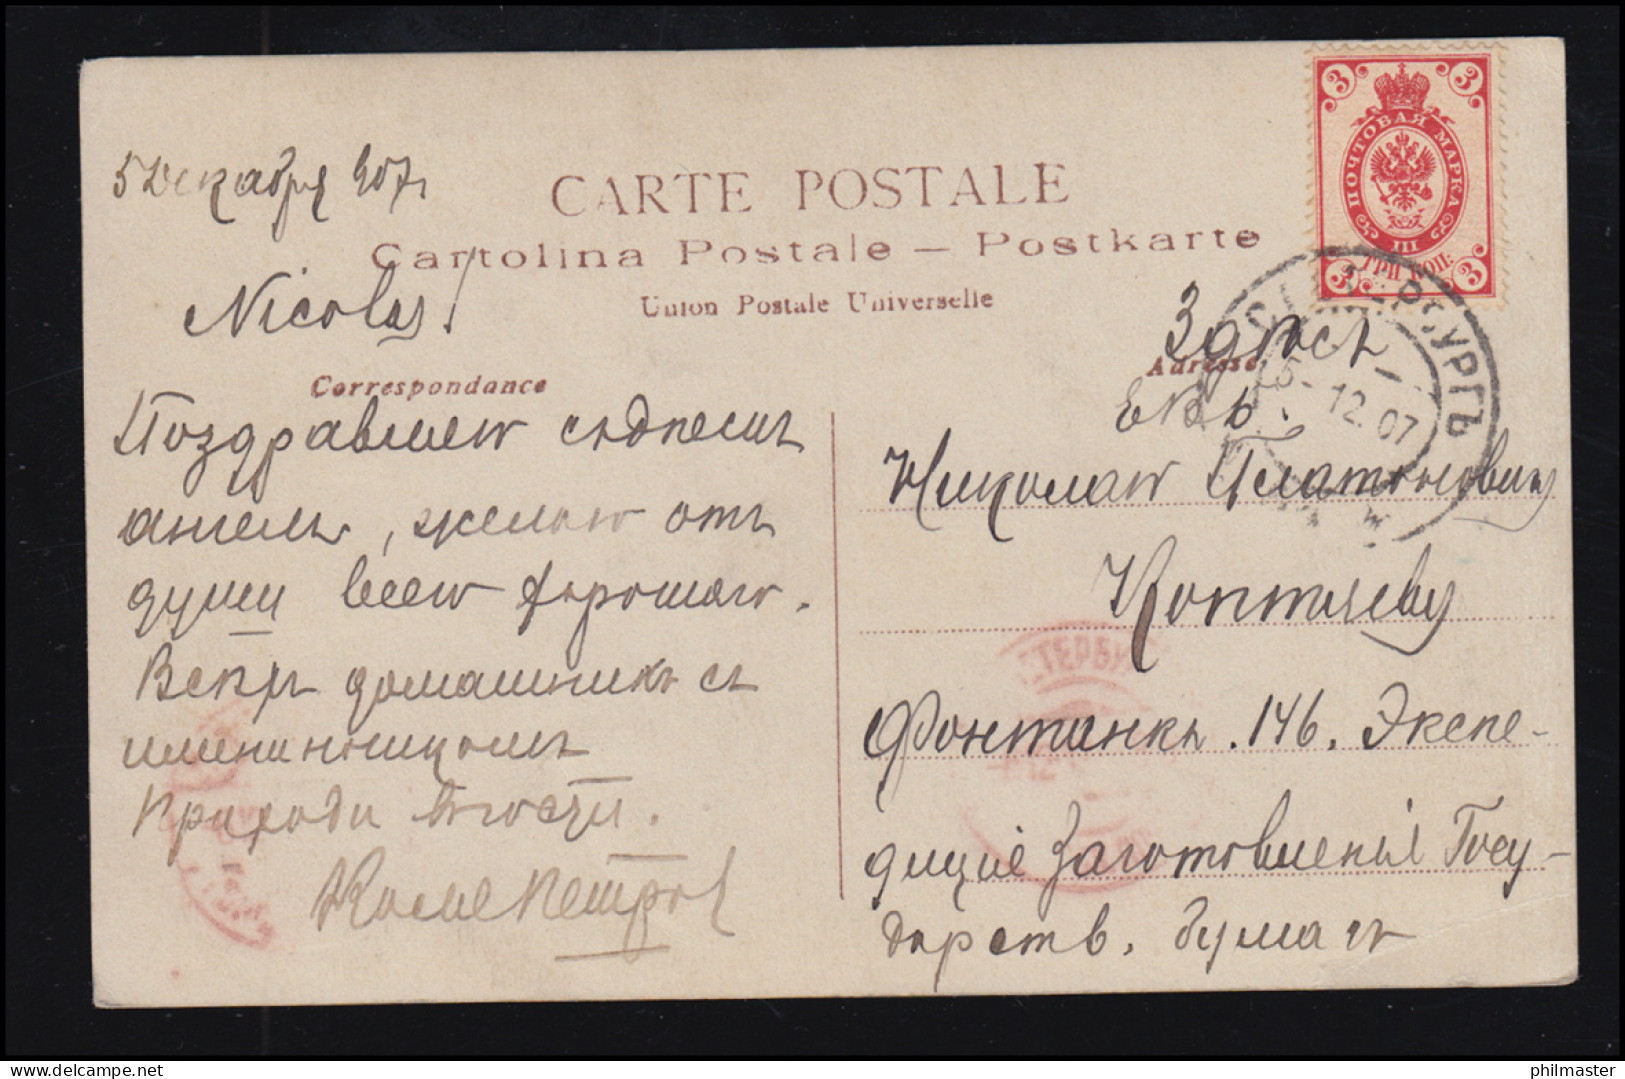 5 Декабря 907г
CARTE POSTALE
Cartolina Postale — Postkarte
Union Postale Universelle
Nicolas!
Correspondance
Поздравляю съ днемъ
ангела, желаю отъ
души всего хорошаго.
домашнихъ съ
имениникомъ
Приходи въ гости.
Коля Петров
3 3
ПОЧТОВАЯ МАРКА
III
ТРИ КОП.
3 3
С.ПЕТЕРБУРГЪ
5.12.07
Здѣсь
Adresse
Евб.
Николаю Платоновичу
Коптяеву
Фонтанка. 146. Экспе-
диціе Заготовленія Госу-
дарств. бумагъ
ПЕТЕРБ
philmaster